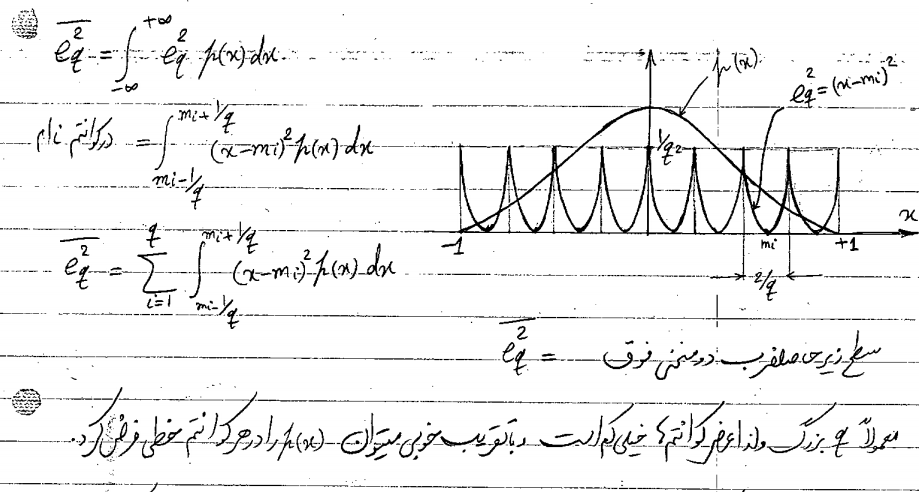 e̅q² = ∫_{-∞}^{+∞} eq² p(x) dx
در کوانتم i ام = ∫_{mi-1/q}^{mi+1/q} (x-mi)² p(x) dx
e̅q² = Σ_{i=1}^{q} ∫_{mi-1/q}^{mi+1/q} (x-mi)² p(x) dx
p(x)
eq² = (x-mi)²
1/q²
x
-1
mi
+1
2/q
e̅q² = سطح زیر حاصلضرب دو منحنی فوق
معمولاً q بزرگ و لذا عرض کوانتم‌ها خیلی کم است و با تقریب خوبی میتوان p(x) را در هر کوانتم خطی فرض کرد.